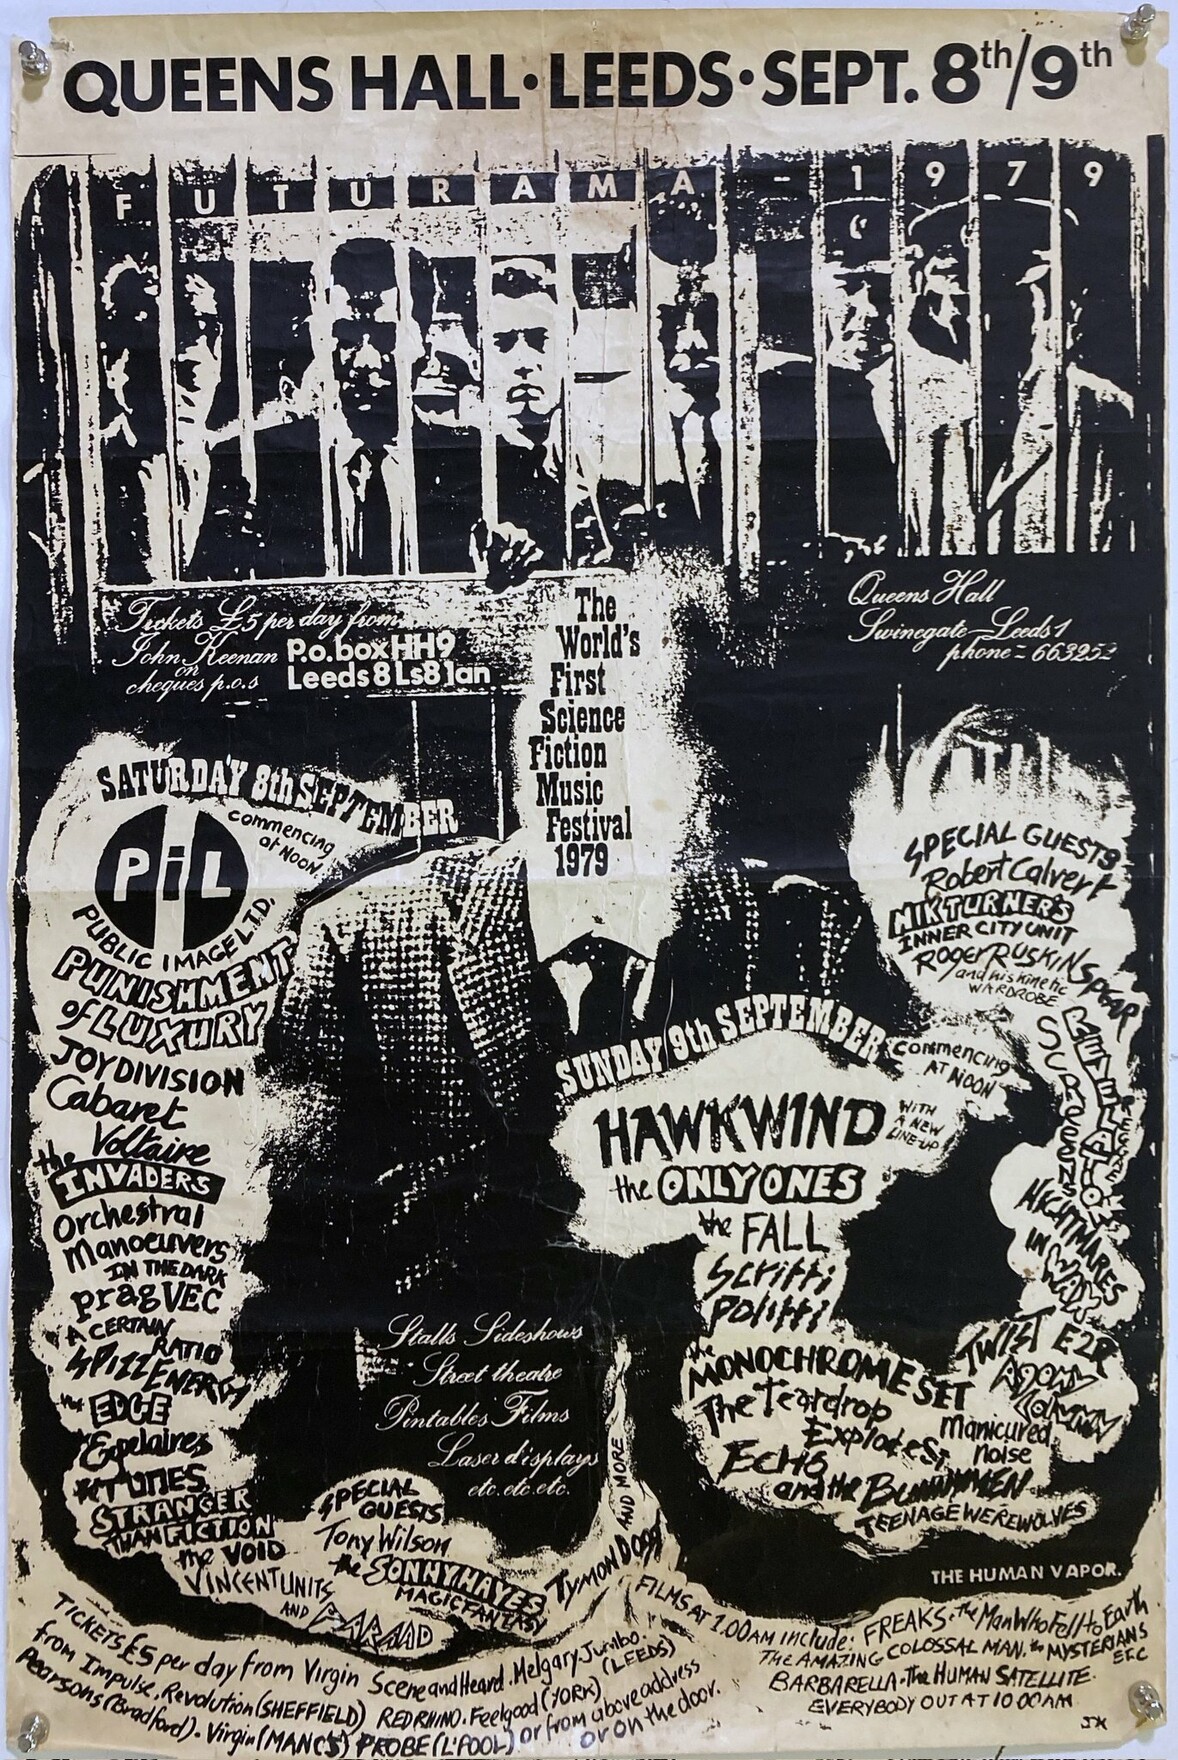 QUEENS HALL·LEEDS·SEPT. 8th/9th
FUTURAMA - 1979
Tickets £5 per day from
John Keenan P.o.box HH9
on
cheques p.o.s Leeds 8 Ls8 1an
Queens Hall
Swinegate Leeds 1
phone - 663252
The
World's
First
Science
Fiction
Music
Festival
1979
SATURDAY 8th SEPTEMBER
commencing
at NOON
PiL
PUBLIC IMAGE LTD.
PUNISHMENT
of LUXURY
JOY DIVISION
Cabaret
Voltaire
the
INVADERS
Orchestral
Manoeuvers
IN THE DARK
prag VEC
A CERTAIN
RATIO
SPIZZ ENERGY
the EDGE
Expelaires
STRANGER
THAN FICTION
the VOID
VINCENT UNITS
AND
SPECIAL
GUESTS
Tony Wilson
the SONNY HAYES
MAGIC FANTASY
TYMON DOGG
AND MORE
Stalls Sideshows
Street theatre
Pintables Films
Laser displays
etc.etc.etc.
SPECIAL GUESTS
Robert Calvert
NIK TURNER'S
INNER CITY UNIT
Roger RUSKIN SPEAR
and his kinetic
WARDROBE
SUNDAY 9th SEPTEMBER
commencing
AT NOON
HAWKWIND
WITH
A NEW
LINE-UP
the ONLY ONES
the FALL
Scritti
Politti
the
MONOCHROME SET
The Teardrop
Explodes
Echo
and the Bunnymen
TEENAGE WEREWOLVES
NIGHTMARES
IN WAX
TWIST
Manicured
noise
THE HUMAN VAPOR.
TICKETS £5 per day from Virgin Scene and Heard. Melgary. Jumbo.
from Impulse, Revolution (SHEFFIELD) RED RHINO. Feelgood (YORK) (LEEDS)
Pearsons (Bradford). Virgin (MANCS) PROBE (L'POOL) or from above address
or on the door.
FILMS AT 1.00AM include: FREAKS. the Man Who Fell to Earth
THE AMAZING COLOSSAL MAN. the MYSTERIANS
ETC
BARBARELLA. the HUMAN SATELLITE.
EVERYBODY OUT AT 10 00AM